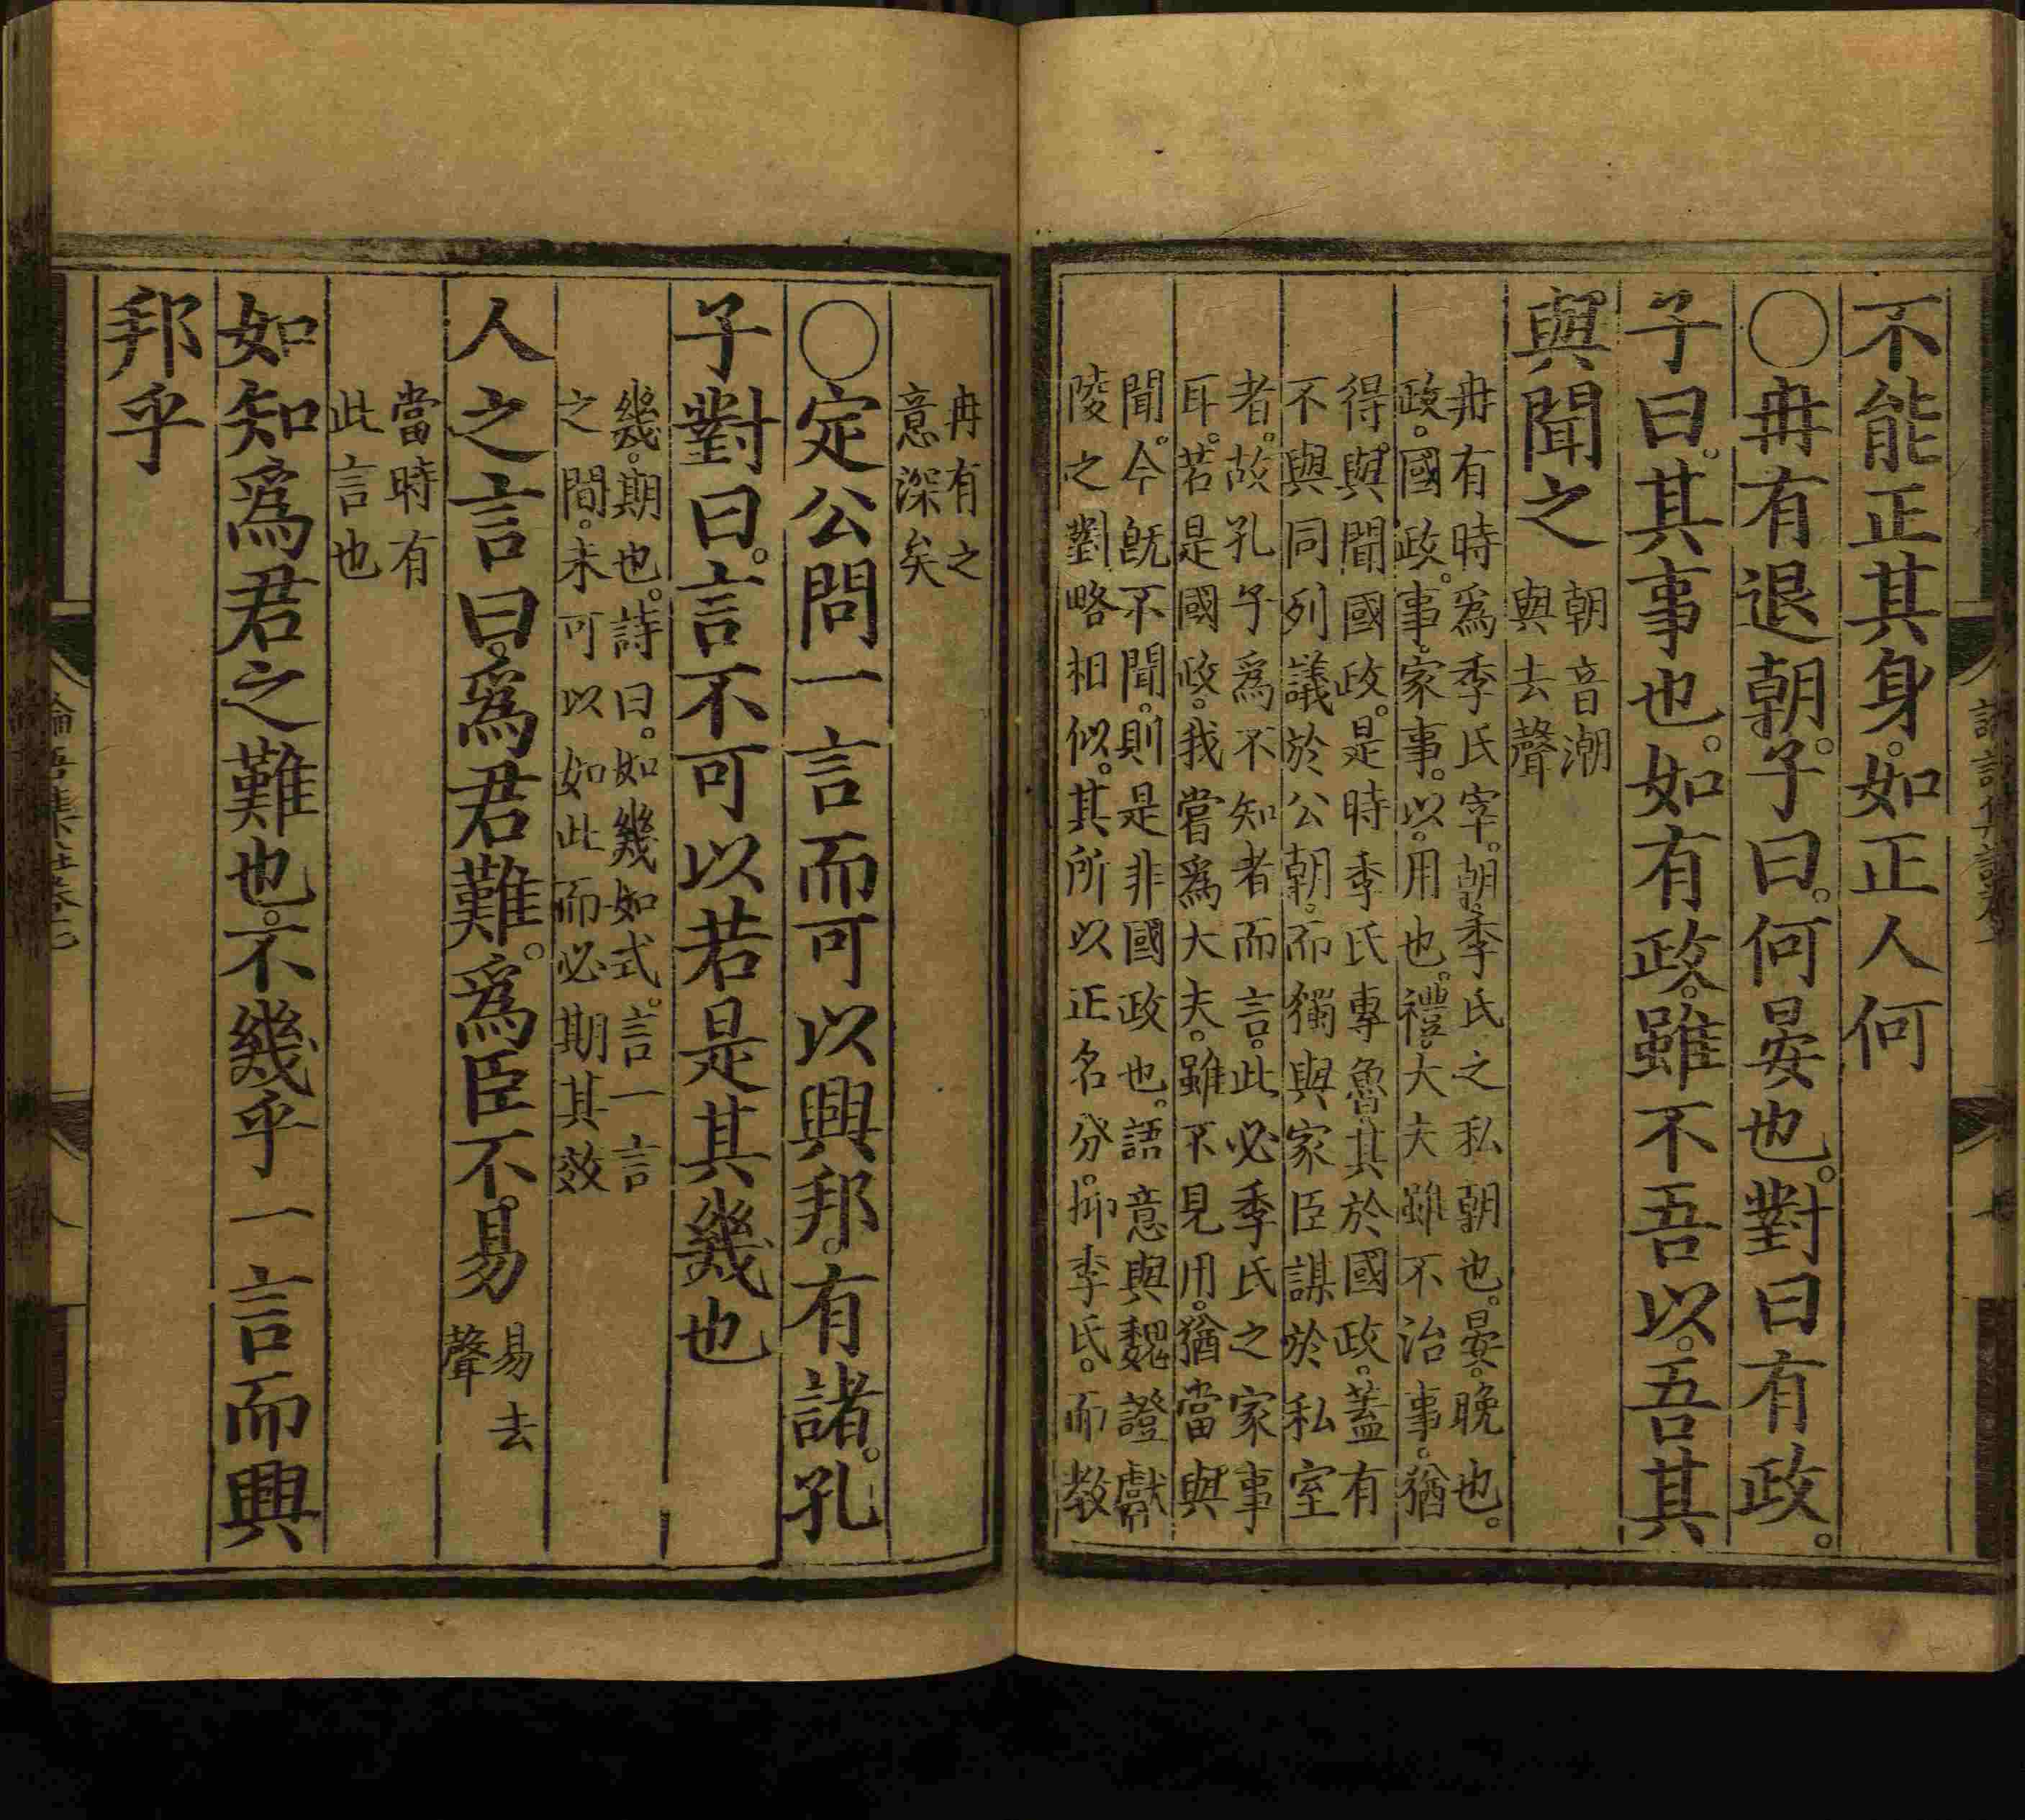 不能正其身。如正人何
○冉有退朝。子曰。何晏也。對曰有政。
子曰。其事也。如有政。雖不吾以。吾其
與聞之
朝音潮
與去聲
冉有時爲季氏宰。朝。季氏之私朝也。晏。晚也。
政。國政。事。家事。以。用也。禮。大夫雖不治事。猶
得。與聞國政。是時季氏專魯。其於國政。蓋有
不與同列議於公朝。而獨與家臣謀於私室
者。故孔子爲不知者而言。此必季氏之家事
耳。若是國政。我嘗爲大夫。雖不見用。猶當與
聞。今旣不聞。則是非國政也。語意與魏證獻
陵之對略相似。其所以正名分。抑季氏。而教
冉有之
意深矣
○定公問一言而可以興邦。有諸。孔
子對曰。言不可以若是其幾也
幾。期也。詩曰。如幾如式。言一言
之間。未可以如此而必期其效
人之言曰。爲君難。爲臣不。易
易去
聲
當時有
此言也
如知爲君之難也。不幾乎一言而興
邦乎
論語集註卷七